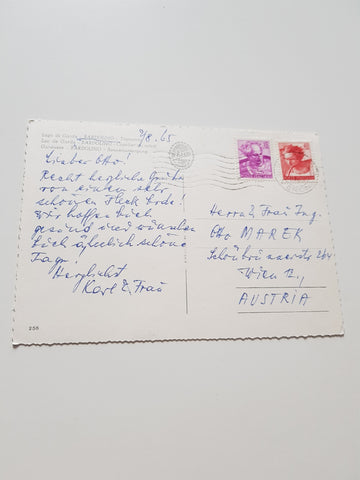 Lago di Garda - BARDOLINO - Tramonto
Lac de Garde - BARDOLINO - Coucher de soleil
Gardasee - BARDOLINO - Sonnenuntergang
7/8. 65
Lieber Otto!
Recht herzliche Grüße
von einem sehr
schönen Fleck Erde!
Wir hoffen Euch
gesund und wünschen
Euch ähnlich schöne
Tage!
Herzlichst
Karl & Frau
Herrn & Frau Ing.
Otto MAREK
Schönbrunnerstr 264
Wien 12.,
AUSTRIA
256